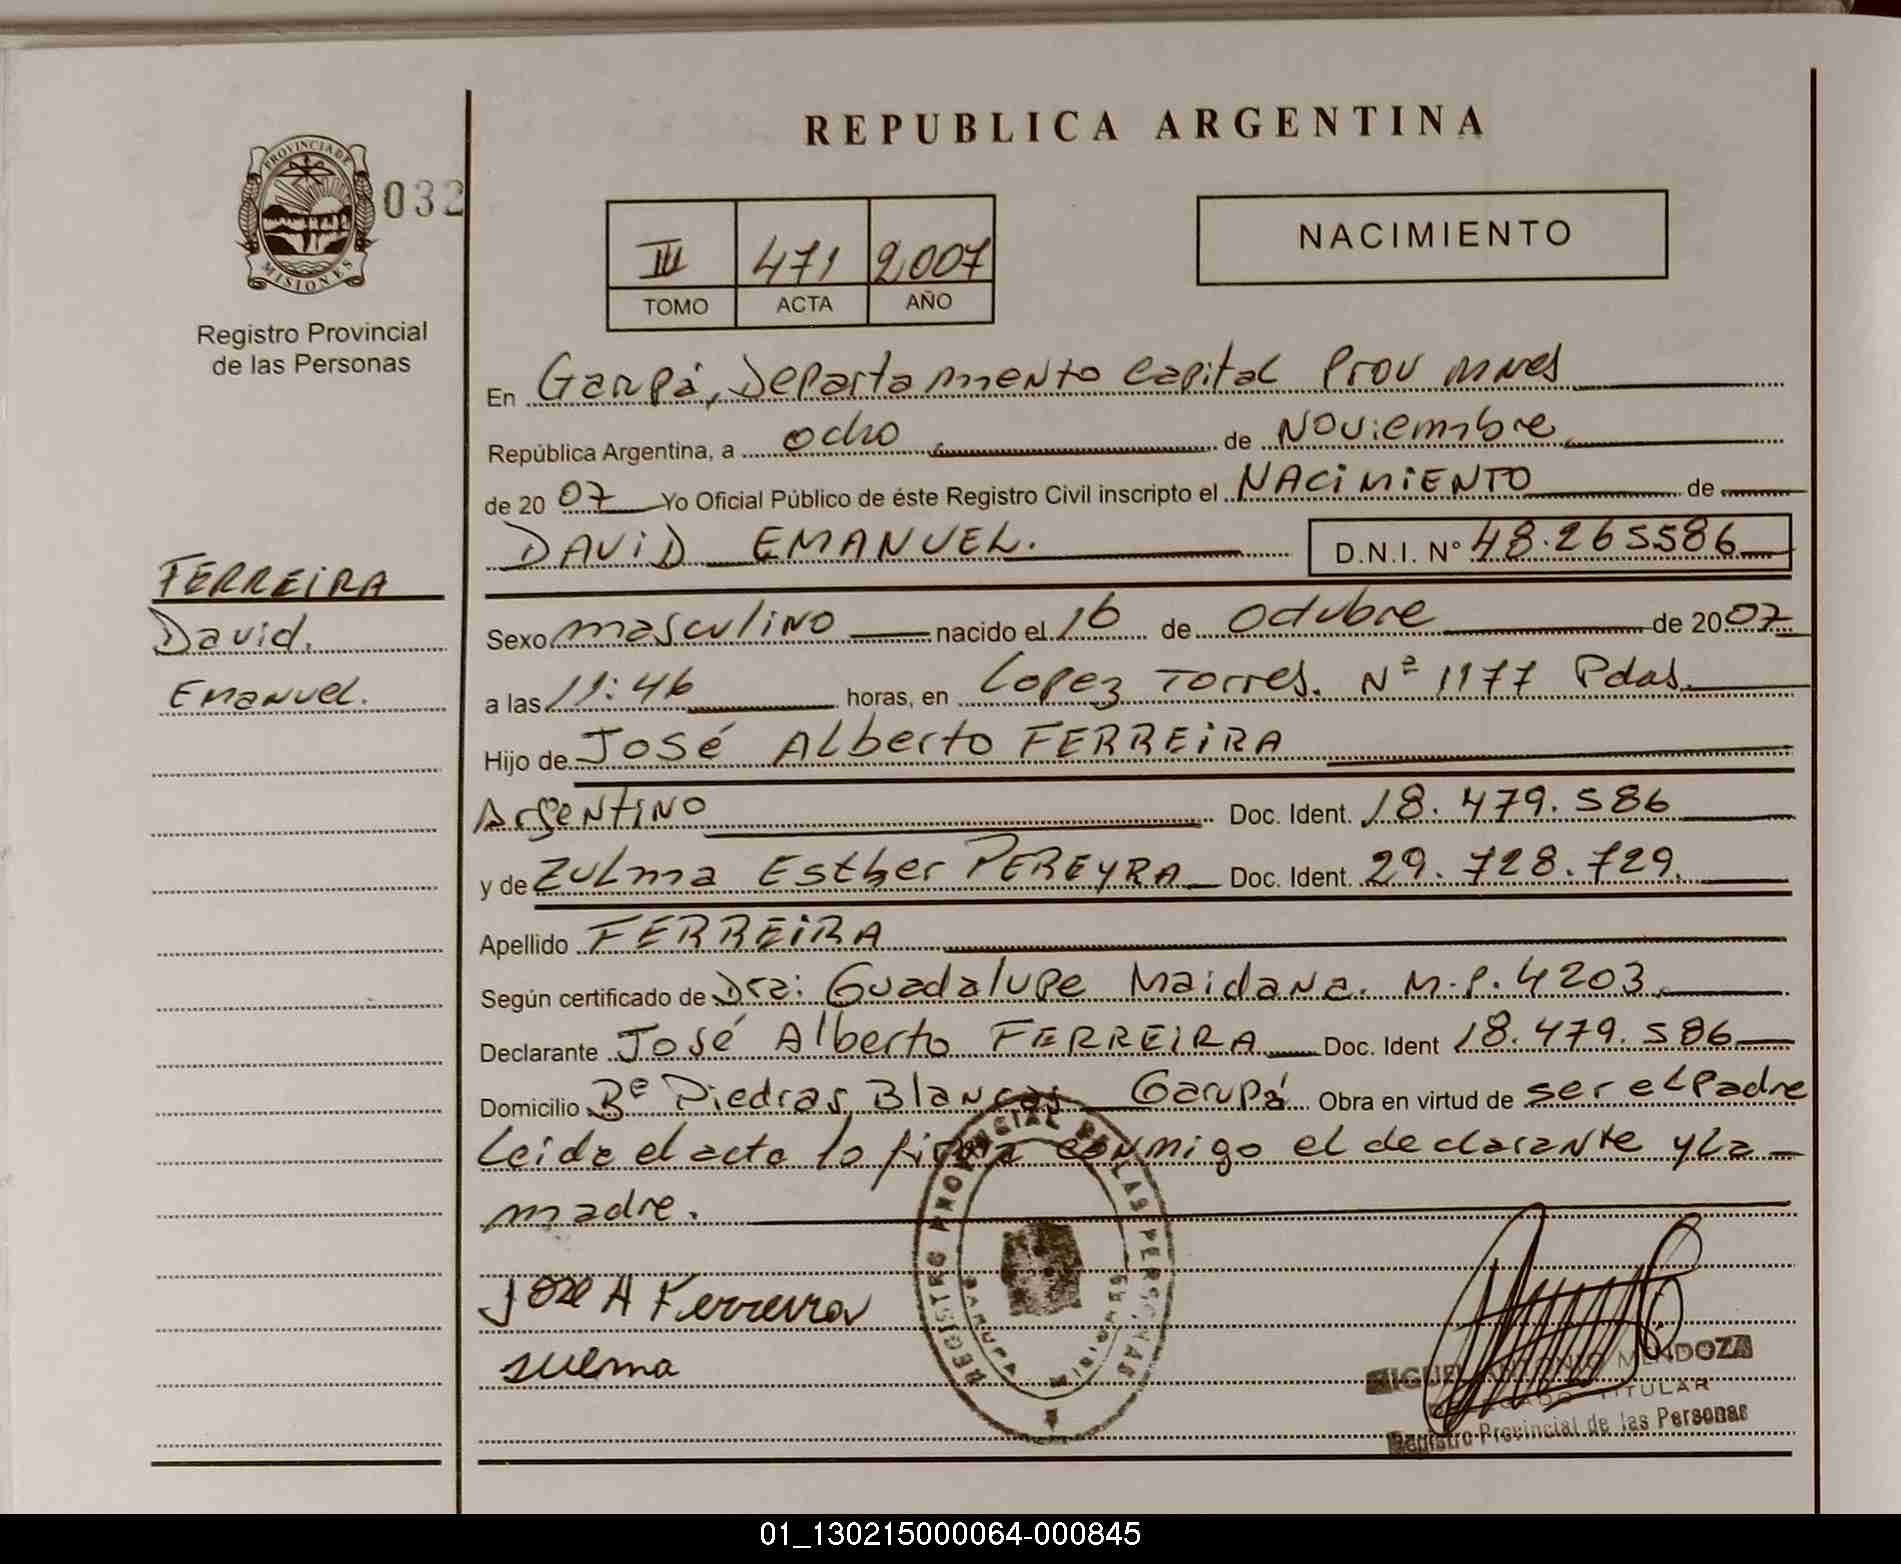 REPUBLICA ARGENTINA
PROVINCIA DE
MISIONES
032
Registro Provincial
de las Personas
III 471 2007
TOMO ACTA AÑO
NACIMIENTO
En Garupá, Departamento Capital Prov Mnes
República Argentina, a ocho de Noviembre
de 2007 Yo Oficial Público de éste Registro Civil inscripto el NACIMIENTO de
DAVID EMANUEL. D.N.I. Nº 48.265586
FERREIRA
David.
Emanuel.
Sexo masculino nacido el 16 de Octubre de 2007
a las 11:46 horas, en Lopez Torres. Nº 1177 Pdas.
Hijo de José Alberto FERREIRA
Argentino Doc. Ident. 18.479.586
y de Zulma Esther PEREYRA Doc. Ident. 29.728.729.
Apellido FERREIRA
Según certificado de Dra: Guadalupe Maidana. M.P. 4203.
Declarante José Alberto FERREIRA Doc. Ident 18.479.586
Domicilio Bº Piedras Blancas Garupá Obra en virtud de ser el Padre
Leida el acta lo firma conmigo el declarante y la
madre.
REGISTRO PROVINCIAL DE LAS PERSONAS
GARUPA MISIONES
Jose A Ferreira
sulma
MIGUEL ANTONIO MENDOZA
DELEGADO TITULAR
Registro Provincial de las Personas
01_130215000064-000845